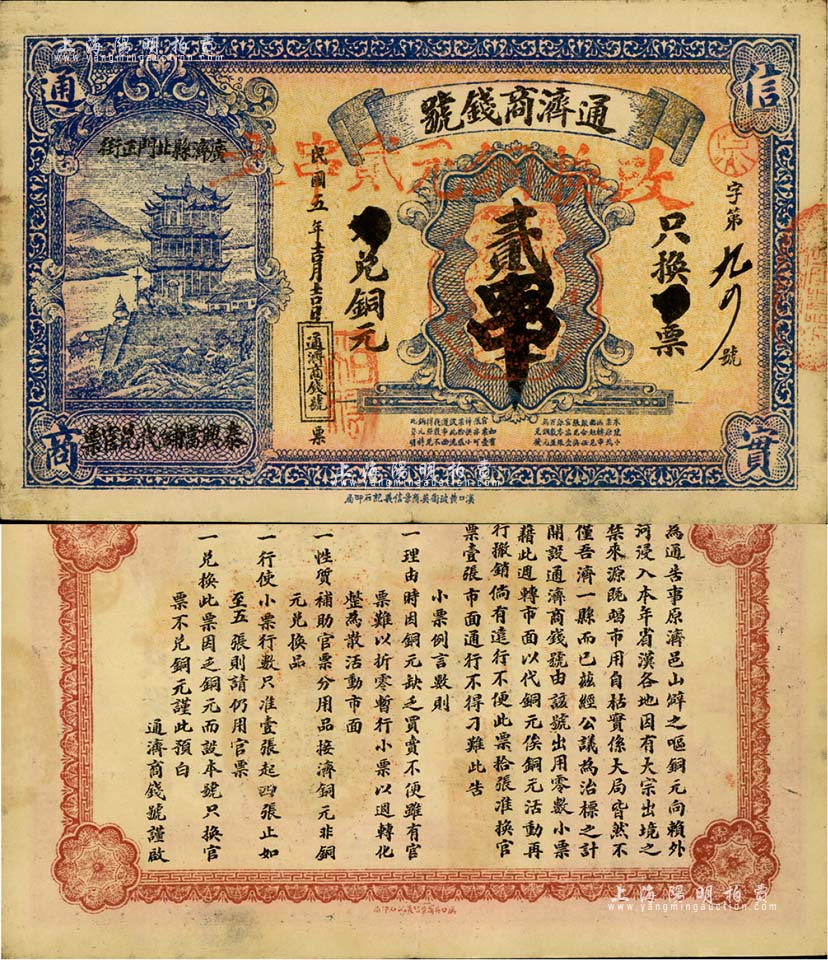 上海陽明拍賣
www.yangmingauction.com
通
信
商
實
通濟商錢號
廣濟縣北門正街
改換銅元貳串
字第九〇號
只換票
貳串
兌銅元
民國五年
通濟商錢號
票
泰興當鋪代兌官票
漢口黃陂街英商景信義記石印局
上海陽明拍賣
www.yangmingauction.com
為通告事原濟邑山僻之嘔銅元向賴外
河浸入本年省漢各地因有大宗出境之
禁來源既竭市用自枯實係大局皆然不
僅吾濟一縣而已茲經公議為治標之計
開設通濟商錢號由該號出用零數小票
藉此週轉市面以代銅元俟銅元活動再
行撤銷倘有違行不便此票拾張准換官
票壹張市面通行不得刁難此告
小票例言數則
一理由時因銅元缺乏買賣不便雖有官
票難以折零暫行小票以週轉化
整為散活動市面
一性質補助官票分用品接濟銅元非銅
元兌換品
一行使小票行數只准壹張起四張止如
至五張則請仍用官票
一兌換此票因乏銅元而設本號只換官
票不兌銅元謹此預白
通濟商錢號謹啟
上海陽明拍賣
www.yangmingauction.com